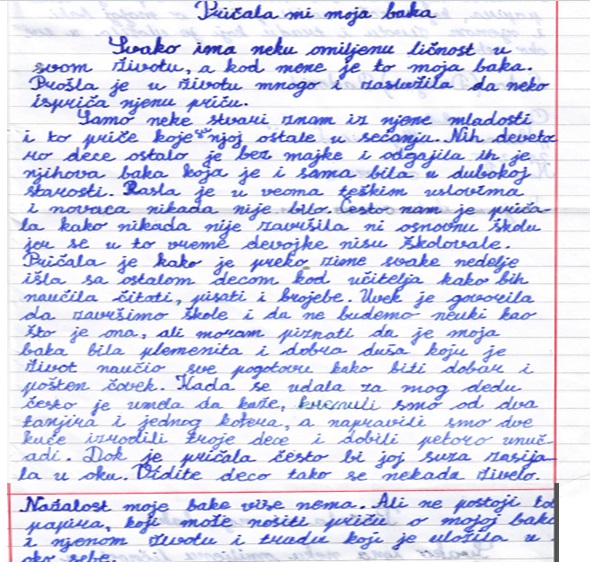 Pričala mi moja baka
Svako ima neku omiljenu ličnost u
svom životu, a kod mene je to moja baka.
Prošla je u životu mnogo i zaslužila da neko
ispriča njenu priču.
Samo neke stvari znam iz njene mladosti
i to priče koje su njoj ostale u sećanju. Nih deveto
ro dece ostalo je bez majke i odgajila ih je
njihova baka koja je i sama bila u dubokoj
starosti. Rasla je u veoma teškim uslovima
i novaca nikada nije bilo. Često nam je priča-
la kako nikada nije završila ni osnovnu školu
jer se u to vreme devojke nisu školovale.
Pričala je kako je preko zime svake nedelje
išla sa ostalom decom kod učitelja kako bih
naučila čitati, pisati i brojebe. Uvek je govorila
da završimo škole i da ne budemo neuki kao
što je ona, ali moram piznati da je moja
baka bila plemenita i dobra duša koju je
život naučio sve pogotovu kako biti dobar i
pošten čovek. Kada se udala za mog dedu
često je umela da kaže, krenuli smo od dva
tanjira i jednog kotera, a napravili smo dve
kuće izrodili troje dece i dobili petoro unuč-
adi. Dok je pričala često bi joj suza zasija-
la u oku. Vidite deco tako se nekada živelo.
Nažalost moje bake više nema. Ali ne postoji
papira, koji može nositi priču o mojoj baki
i njenom životu i trudu koji je uložila u
oko sebe.